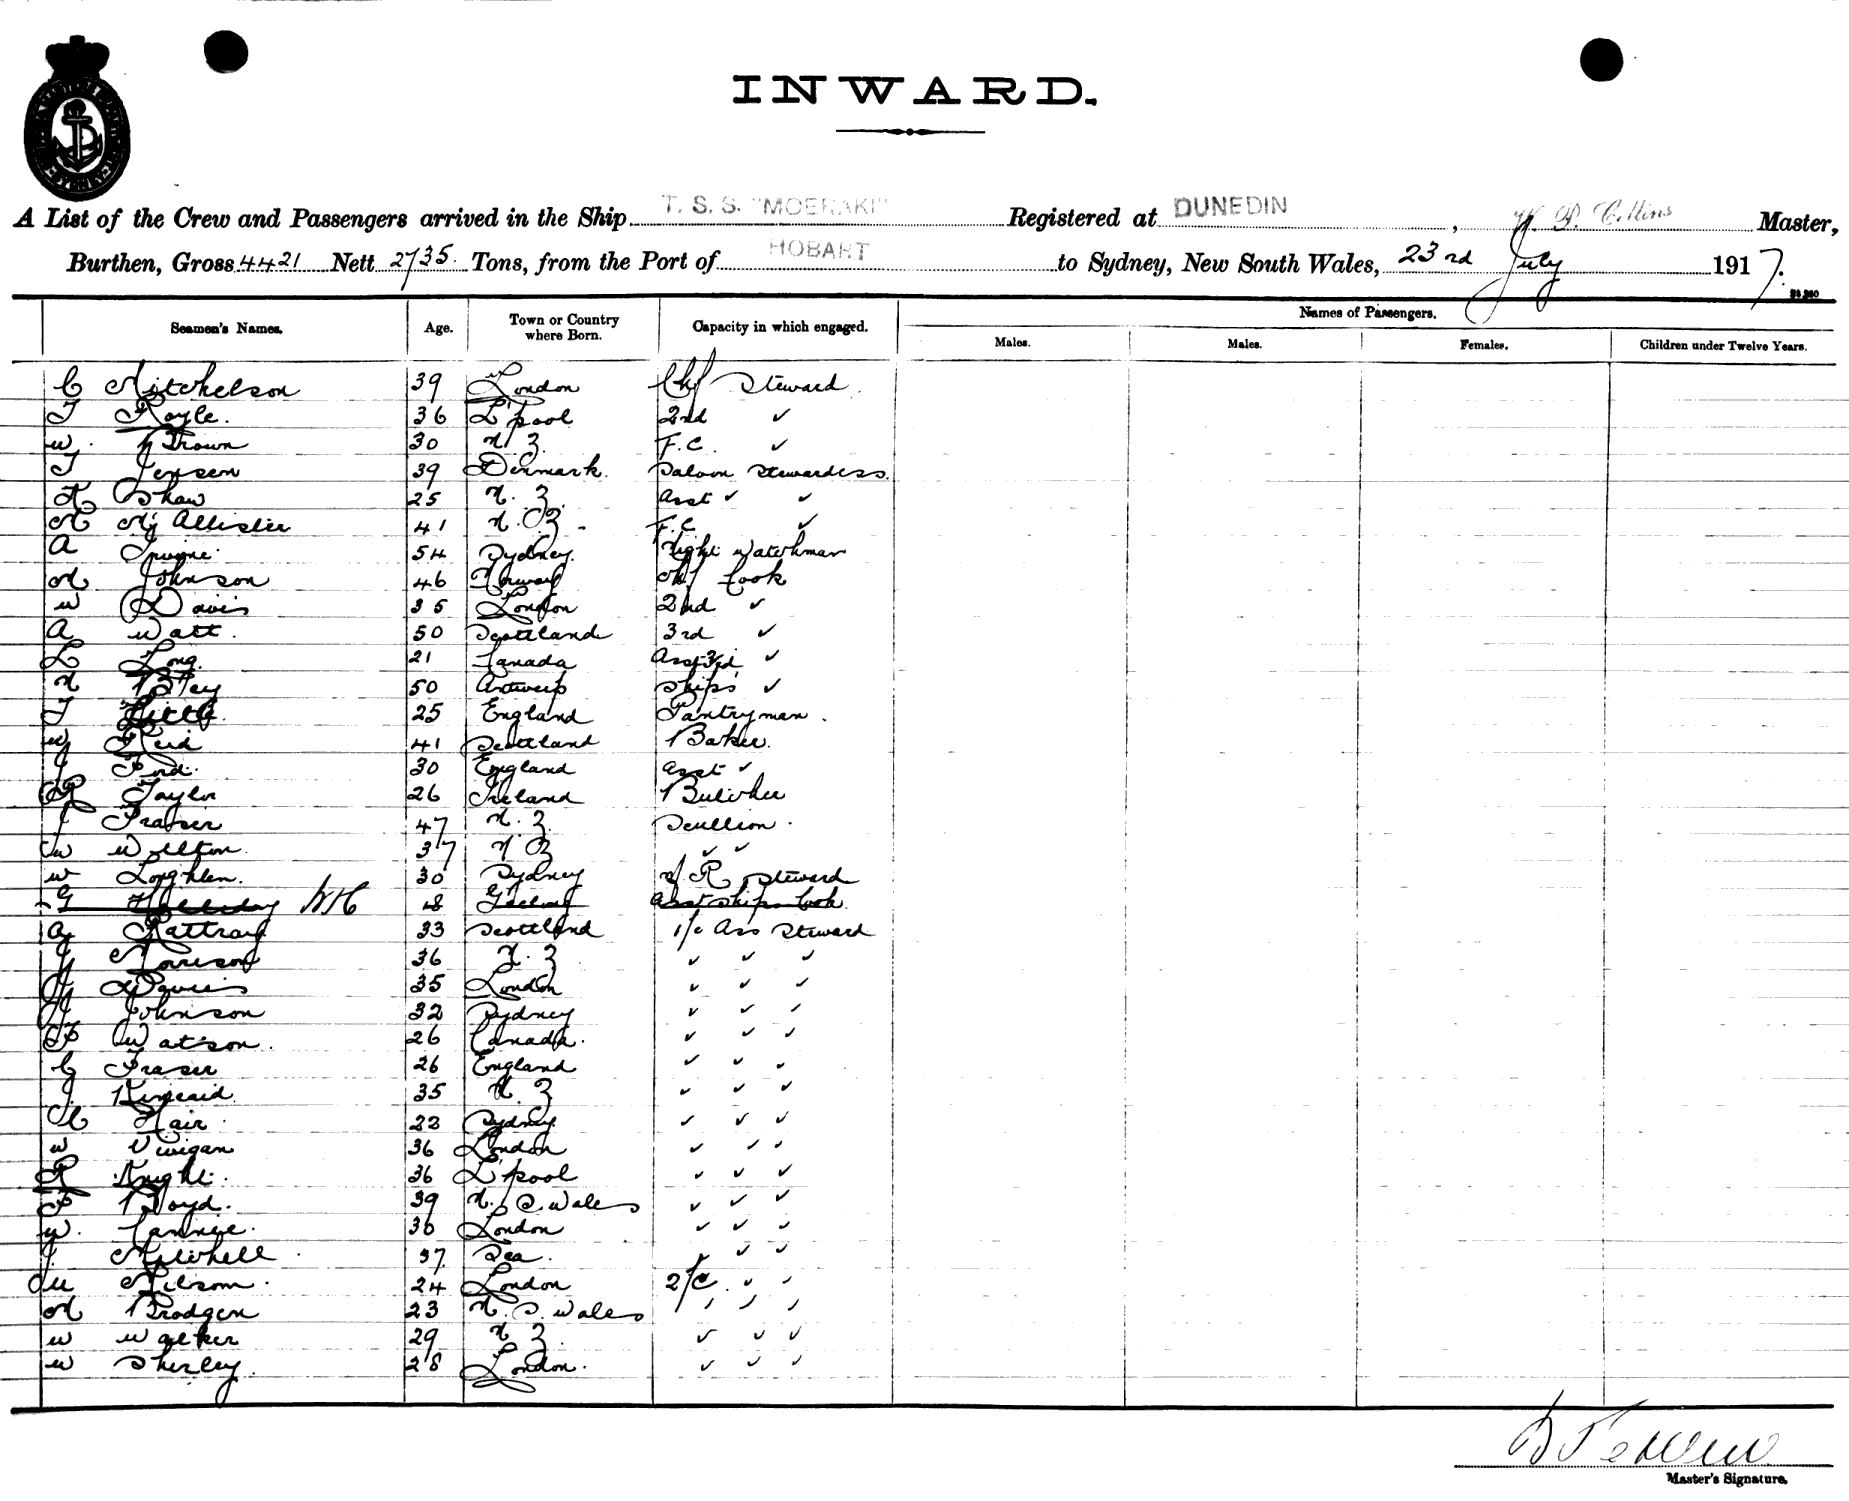 INWARD.
A List of the Crew and Passengers arrived in the Ship T. S. S. "MOERAKI" Registered at DUNEDIN, W. P. Collins Master,
Burthen, Gross 4421 Nett 2735. Tons, from the Port of HOBART to Sydney, New South Wales, 23rd July 1917.
Seamen's Names. Age. Town or Country where Born. Capacity in which engaged. Names of Passengers.
Males. Males. Females. Children under Twelve Years.
C Mitchelson 39 London Chf Steward
T Royle. 36 L'pool 2nd ✓
W. Brown 30 N Z F.C. ✓
T Jensen 39 Denmark. Saloon Stewardess.
Shaw 25 N. Z. Asst ✓ ✓
Mc Allister 41 N. Z. F.C ✓
A Irvine 54 Sydney. Night Watchman
Johnson 46 Norway Chf Cook
W Davis 35 London 2nd ✓
A Watt. 50 Scotland 3rd ✓
L Long. 21 Canada Asst 3rd ✓
N 50 Antwerp Ships ✓
T Little 25 England Pantryman.
W Reid 41 Scotland Baker.
J Ford. 30 England Asst ✓
R Taylor 26 Ireland Butcher
J Fraser 47 N. Z. Scullion.
W Wilton. 37 N Z ✓ ✓
W Loghlen. 30 Sydney Steward
G Holliday 18 Geelong Asst Ships Cook.
A Rattray 33 Scotland 1/c Ass Steward
J Morrison 36 N. Z ✓ ✓ ✓
J Davies 35 London ✓ ✓ ✓
J Johnson 32 Sydney ✓ ✓ ✓
F Watson. 26 Canada. ✓ ✓ ✓
C Fraser 26 England ✓ ✓ ✓
J. Kincaid. 35 N. Z ✓ ✓ ✓
Hair 22 Sydney. ✓ ✓ ✓
W Vivigan 36 London ✓ ✓ ✓
R Knight. 36 L'pool ✓ ✓ ✓
F Boyd. 39 N. S. Wales ✓ ✓ ✓
W. 30 London ✓ ✓ ✓
J. Mitchell. 37. Sea. ✓ ✓ ✓
Milsom. 24 London 2/c. ✓ ✓
Brodgen 23 N. S. Wales ✓ ✓ ✓
W Walker 29 N Z. ✓ ✓ ✓
W Shirley. 28 London. ✓ ✓ ✓
Master's Signature.